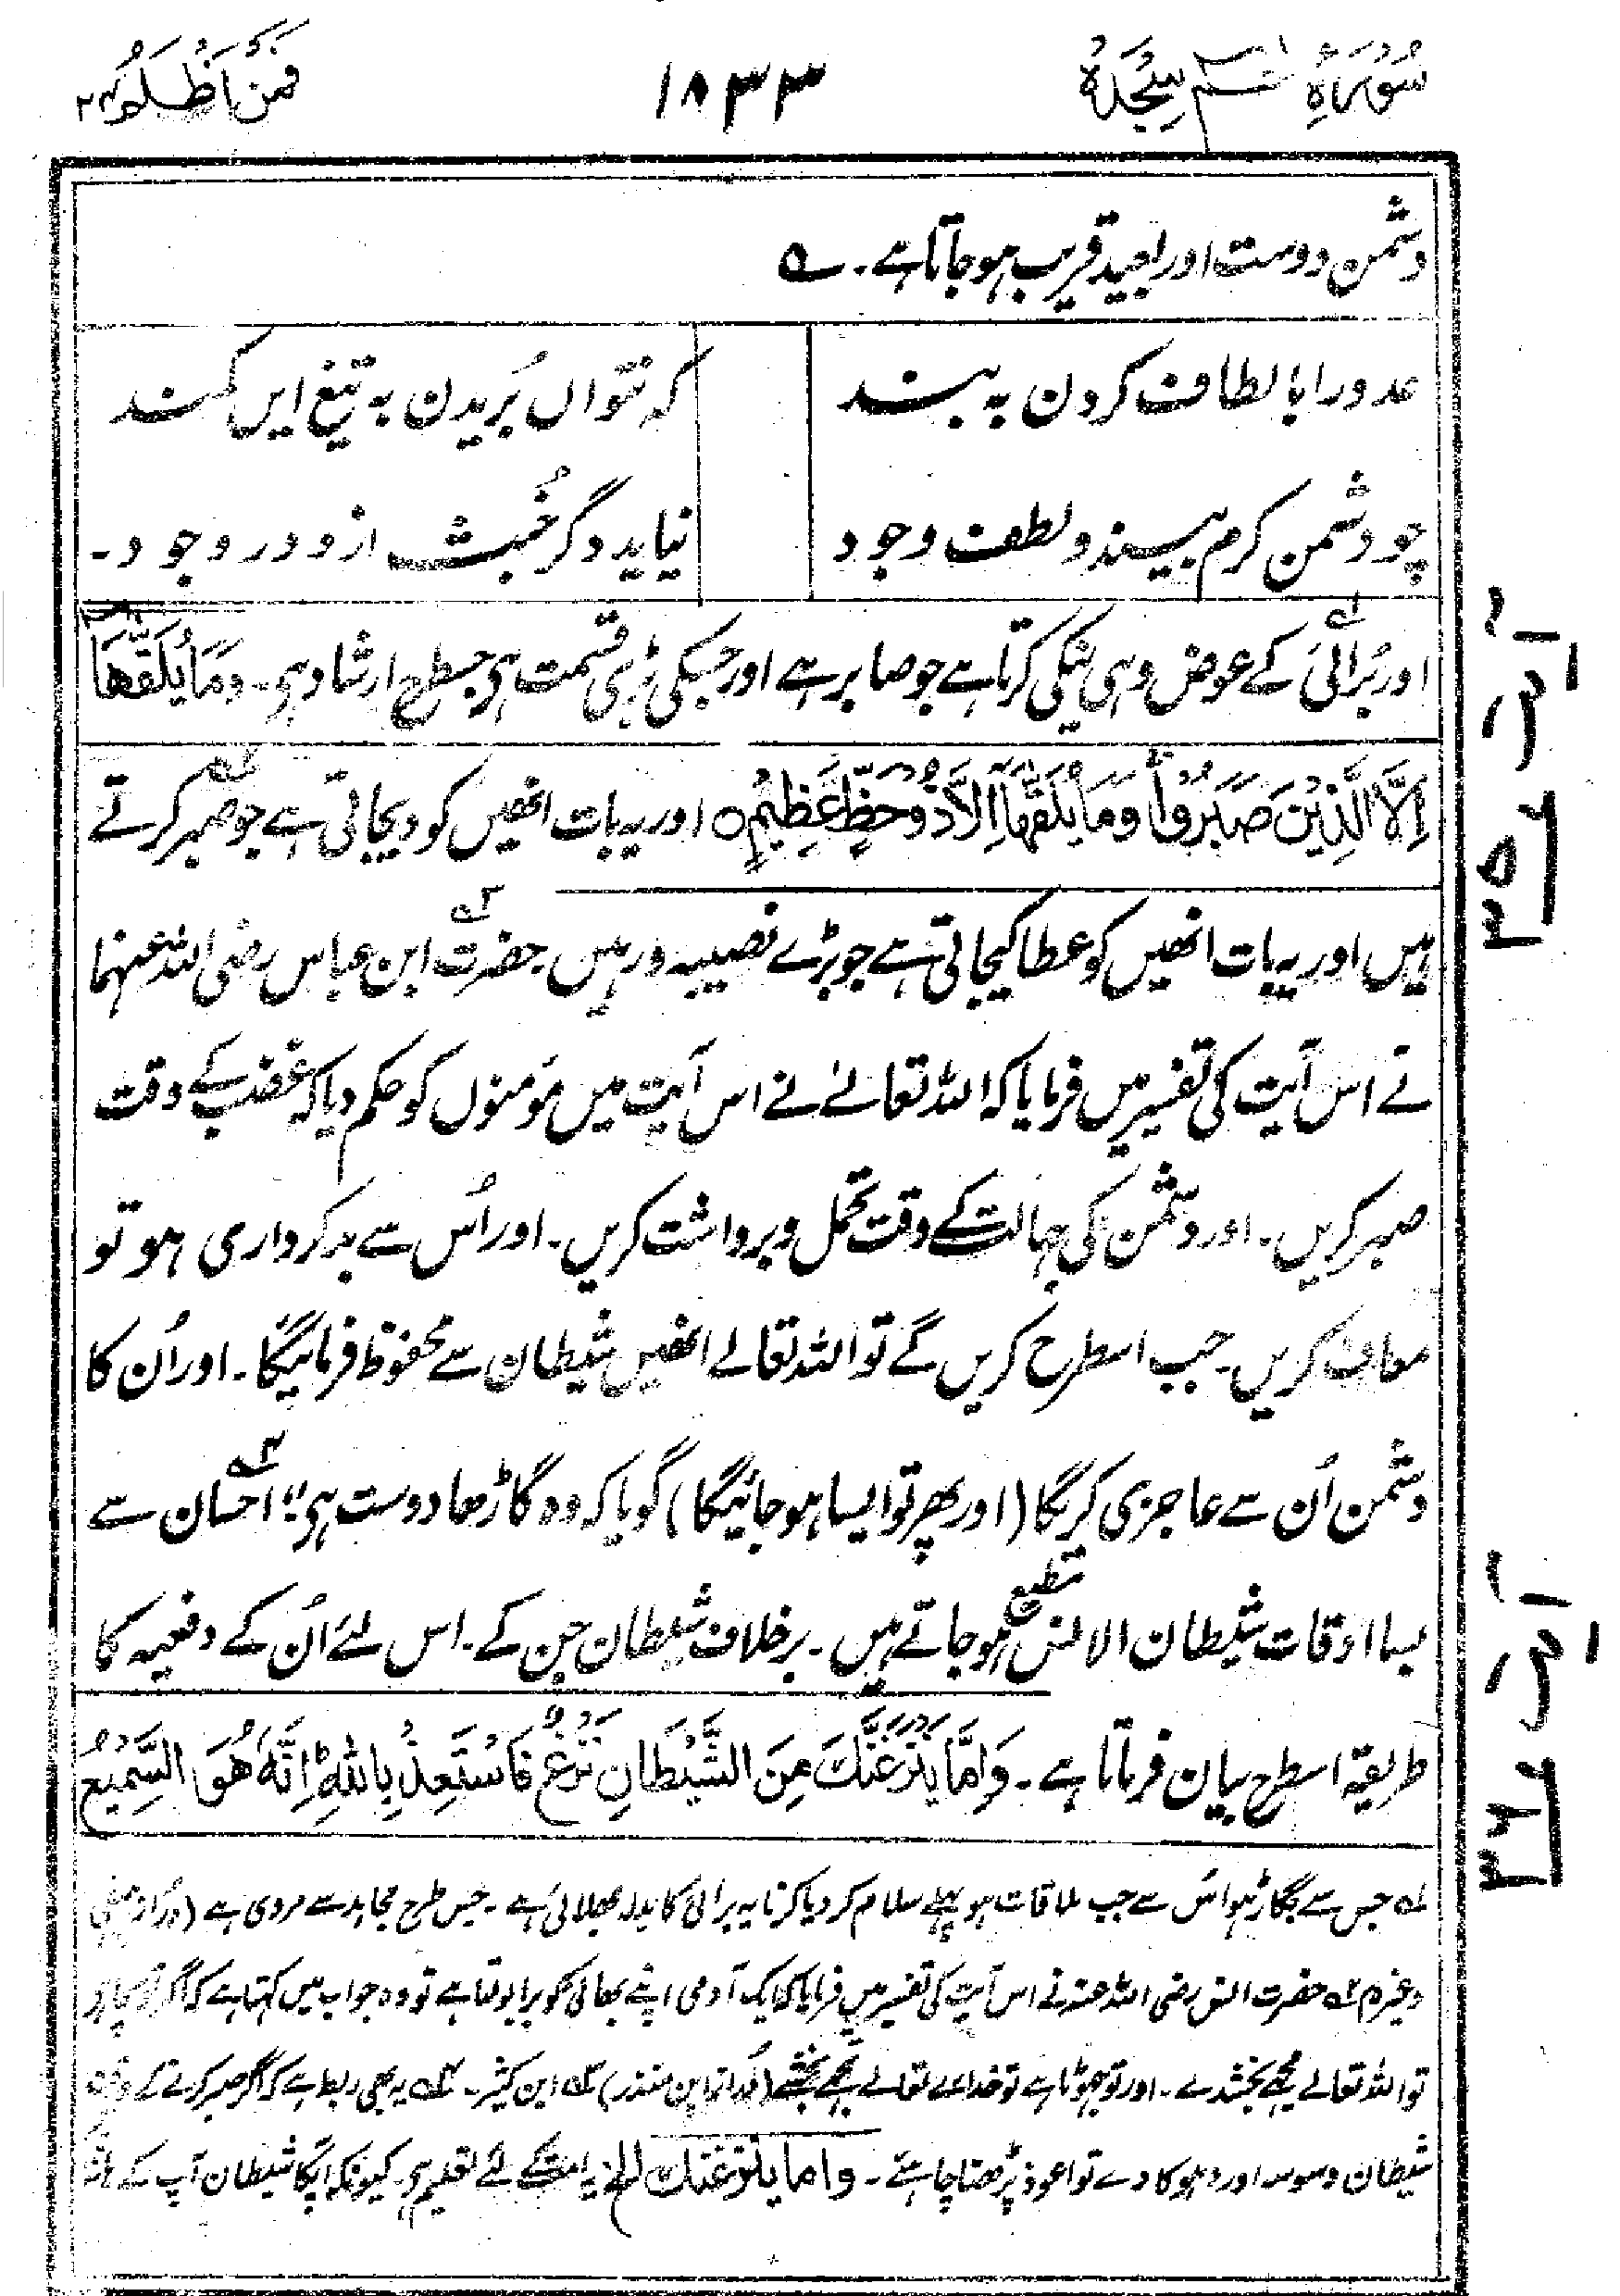 سُوْرَۃُ حٰمٓ سَجْدَۃ ۱۸۳۳ فَمَنْ اَظْلَمُ ۲۴
دشمن دوست اور بعید قریب ہو جاتا ہے۔ ؎
عدو را با لطاف کردن بہ بند کہ نتواں بُریدن بہ تیغ ایں کمند
چو دشمن کرم بیند و لطف و جود نیاید دگر خُبث ازو در وجود۔
اور بُرائی کے عوض وہی نیکی کرتا ہے جو صابر ہے اور جسکی بڑی قسمت ہی جسطرح ارشاد ہی۔ وَمَا یُلَقّٰہَا
اِلَّا الَّذِیْنَ صَبَرُوْا وَمَا یُلَقّٰہَا اِلَّا ذُوْ حَظٍّ عَظِیْمٍ ○ اور یہ بات انھیں کو دیجاتی ہے جو صبر کرتے
ہیں اور یہ بات انھیں کو عطا کیجاتی ہے جو بڑے نصیبہ ور ہیں۔ حضرت ابن عباس رضی اللہ عنہما
نے اس آیت کی تفسیر میں فرمایا کہ اللہ تعالےٰ نے اس آیت میں مؤمنوں کو حکم دیا کہ غضب کے وقت
صبر کریں۔ اور دشمن کی جہالت کے وقت تحمل و برداشت کریں۔ اور اُس سے بدکرداری ہو تو
معاف کریں۔ جب اسطرح کریں گے تو اللہ تعالے انھیں شیطان سے محفوظ فرمائیگا۔ اور اُن کا
دشمن اُن سے عاجزی کریگا (اور پھر تو ایسا ہو جائیگا) گویا کہ وہ گاڑھا دوست ہی" ۳؎ احسان سے
بسا اوقات شیطان الانس مطیع ہو جاتے ہیں۔ برخلاف شیطان جن کے۔ اس لئے اُن کے دفعیہ کا
طریقہ اسطرح بیان فرماتا ہے۔ وَاِمَّا یَنْزَغَنَّکَ مِنَ الشَّیْطَانِ نَزْغٌ فَاسْتَعِذْ بِاللّٰہِ اِنَّہٗ ھُوَ السَّمِیْعُ
۱؎ جس سے بگاڑ ہو اُس سے جب ملاقات ہو پہلے سلام کر دیا کرنا یہ برائی کا بدلہ بھلائی ہے۔ جس طرح مجاہد سے مروی ہے
وغیرہ ۲؎ حضرت انس رضی اللہ عنہ نے اس آیت کی تفسیر میں فرمایا کہ ایک آدمی اپنے بھائی کو برا بولتا ہے تو وہ جواب میں کہتا ہے کہ اگر تو سچا ہو
تو اللہ تعالے مجھے بخشدے۔ اور تو جھوٹا ہے تو خدائے تعالے تجھے بخشے (ابن منذر) ۳؎ ابن کثیر۔ ۴؎ یہ بھی ربط ہے کہ اگر صبر کرنے کے وقت
شیطان وسوسہ اور دھوکا دے تو اعوذ پڑھنا چاہئے۔ واما ینزغنک الخ یہ امت کے لئے تعلیم ہی۔ کیونکہ آپکا شیطان آپ کے
آیۃ ۳۵
آیۃ ۳۶